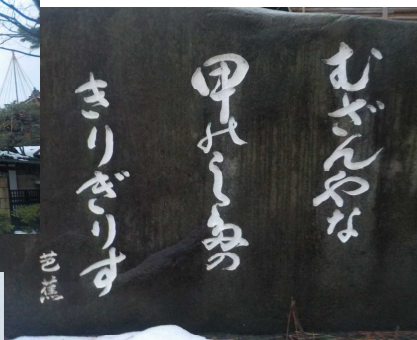 むざんやな
甲の志多の
きりぎりす
芭蕉